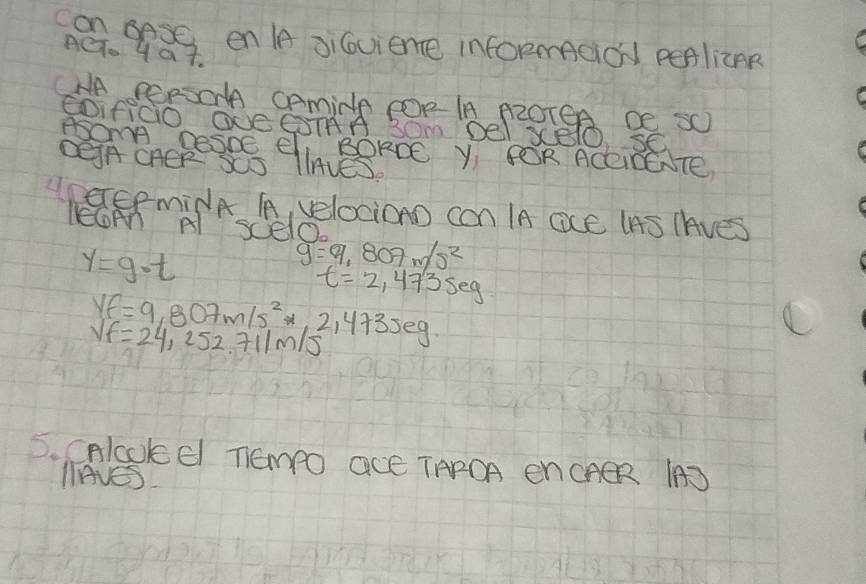 con BASE en lA siGuiente informAcion reAlizAR
ACT. 4 a 7.
UNA PERSONA CAMINA POR lA AZOTEA DE SU
EDificio QUE ESTA A 30m Del suelo, se
ASOMA DESDE El BORDE y, POR ACCIDENTE,
DEJA CAER SUS llAVES.
4 DETERMINA lA velociDAD con lA QUE lAS llAVES
llEGAN Al suelo.
g=9,807 m/s²
y=g.t
t=2,473 seg
Vf=9,807m/s² * 2,473seg.
Vf=24,252.711m/s
5. CAlcule el TIEMPO QUE TARDA en CAER lAS
llAVES.